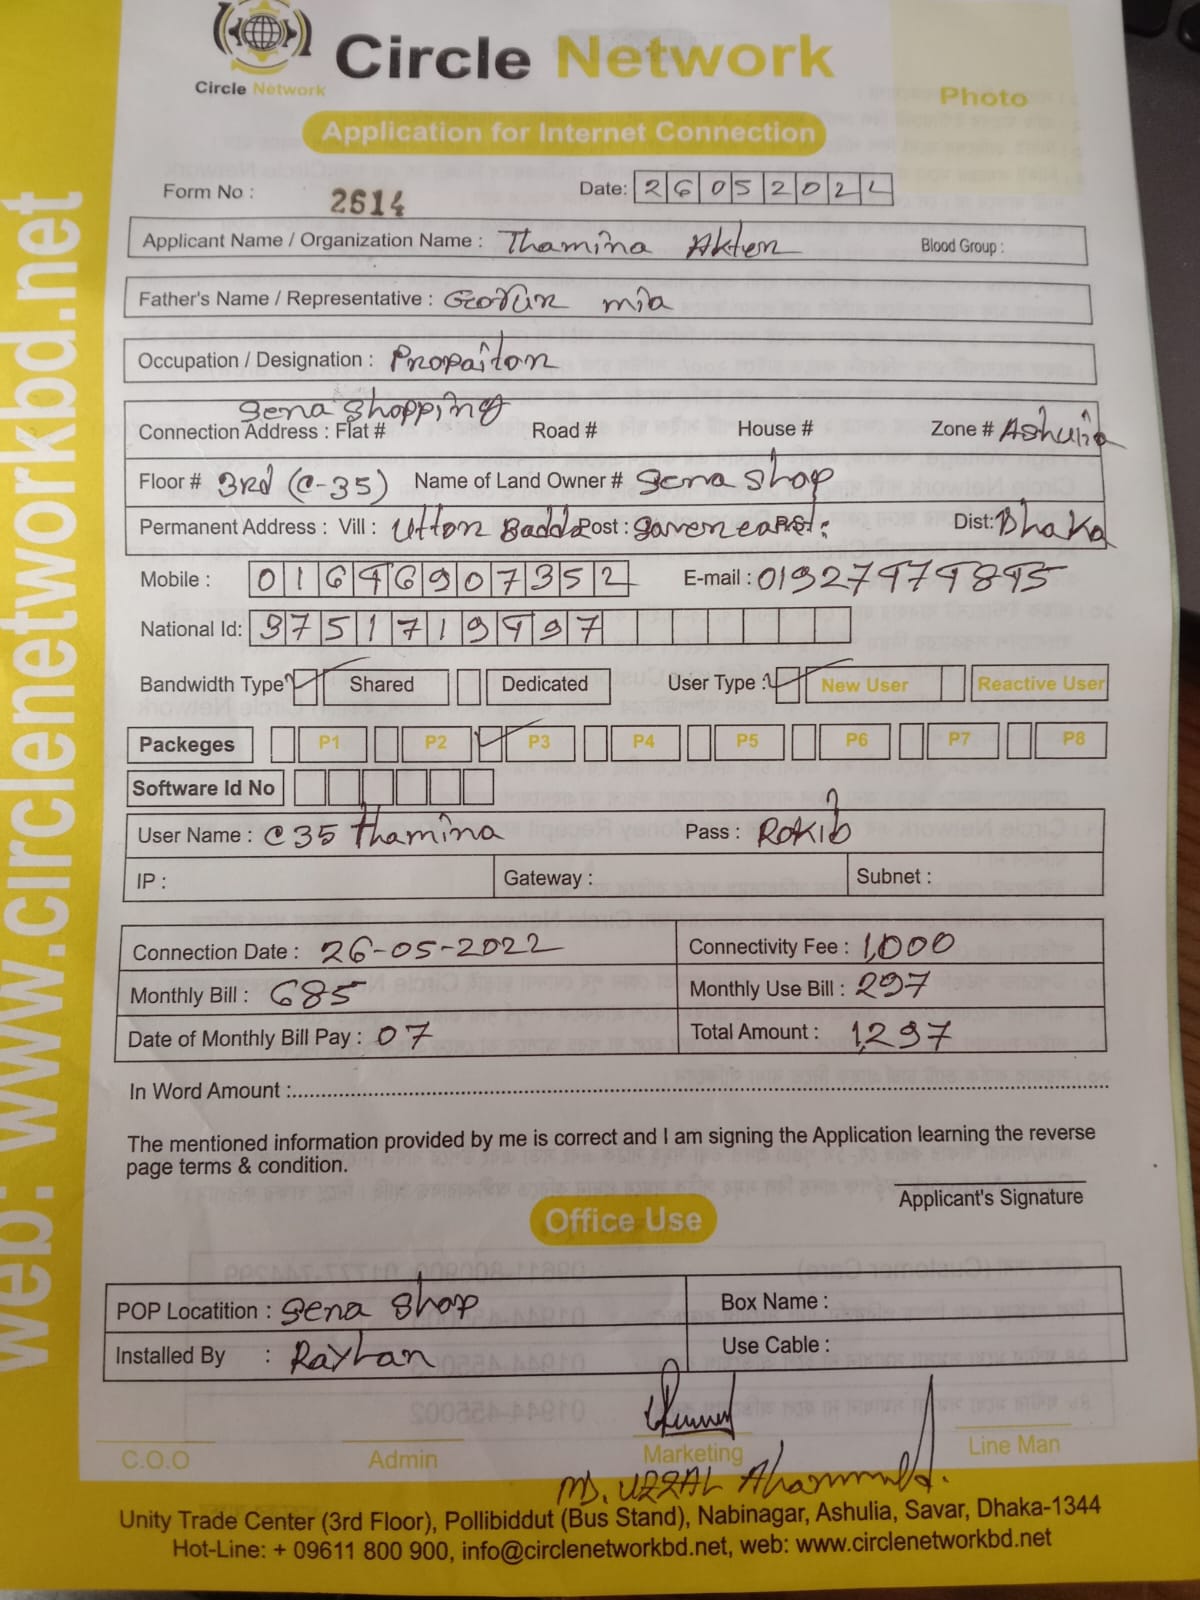 Circle Network
Circle Network
Photo
Application for Internet Connection
Form No : 2614
Date: 26052022
Applicant Name / Organization Name : Thamina Akter Blood Group :
Father's Name / Representative : mia
Occupation / Designation : Propaitor
Sena Shopping
Connection Address : Flat # Road # House # Zone # Ashulia
Floor # 3rd (C-35) Name of Land Owner # Sena Shop
Permanent Address : Vill : Uttor Badda Post : P.S : Dist: Dhaka
Mobile : E-mail :
National Id:
Bandwidth Type Shared Dedicated User Type : New User Reactive User
Packeges P1 P2 P3 P4 P5 P6 P7 P8
Software Id No
User Name : C35 thamina Pass : Rokib
IP : Gateway : Subnet :
Connection Date : 26-05-2022 Connectivity Fee : 1,000
Monthly Bill : 685 Monthly Use Bill : 297
Date of Monthly Bill Pay : 07 Total Amount : 1,297
In Word Amount :
The mentioned information provided by me is correct and I am signing the Application learning the reverse
page terms & condition.
Applicant's Signature
Office Use
POP Locatition : Sena Shop Box Name :
Installed By : Rayhan Use Cable :
C.O.O Admin Marketing Line Man
MD. UZZAL Ahammed.
Unity Trade Center (3rd Floor), Pollibiddut (Bus Stand), Nabinagar, Ashulia, Savar, Dhaka-1344
Hot-Line: + 09611 800 900, info@circlenetworkbd.net, web: www.circlenetworkbd.net
web: www.circlenetworkbd.net